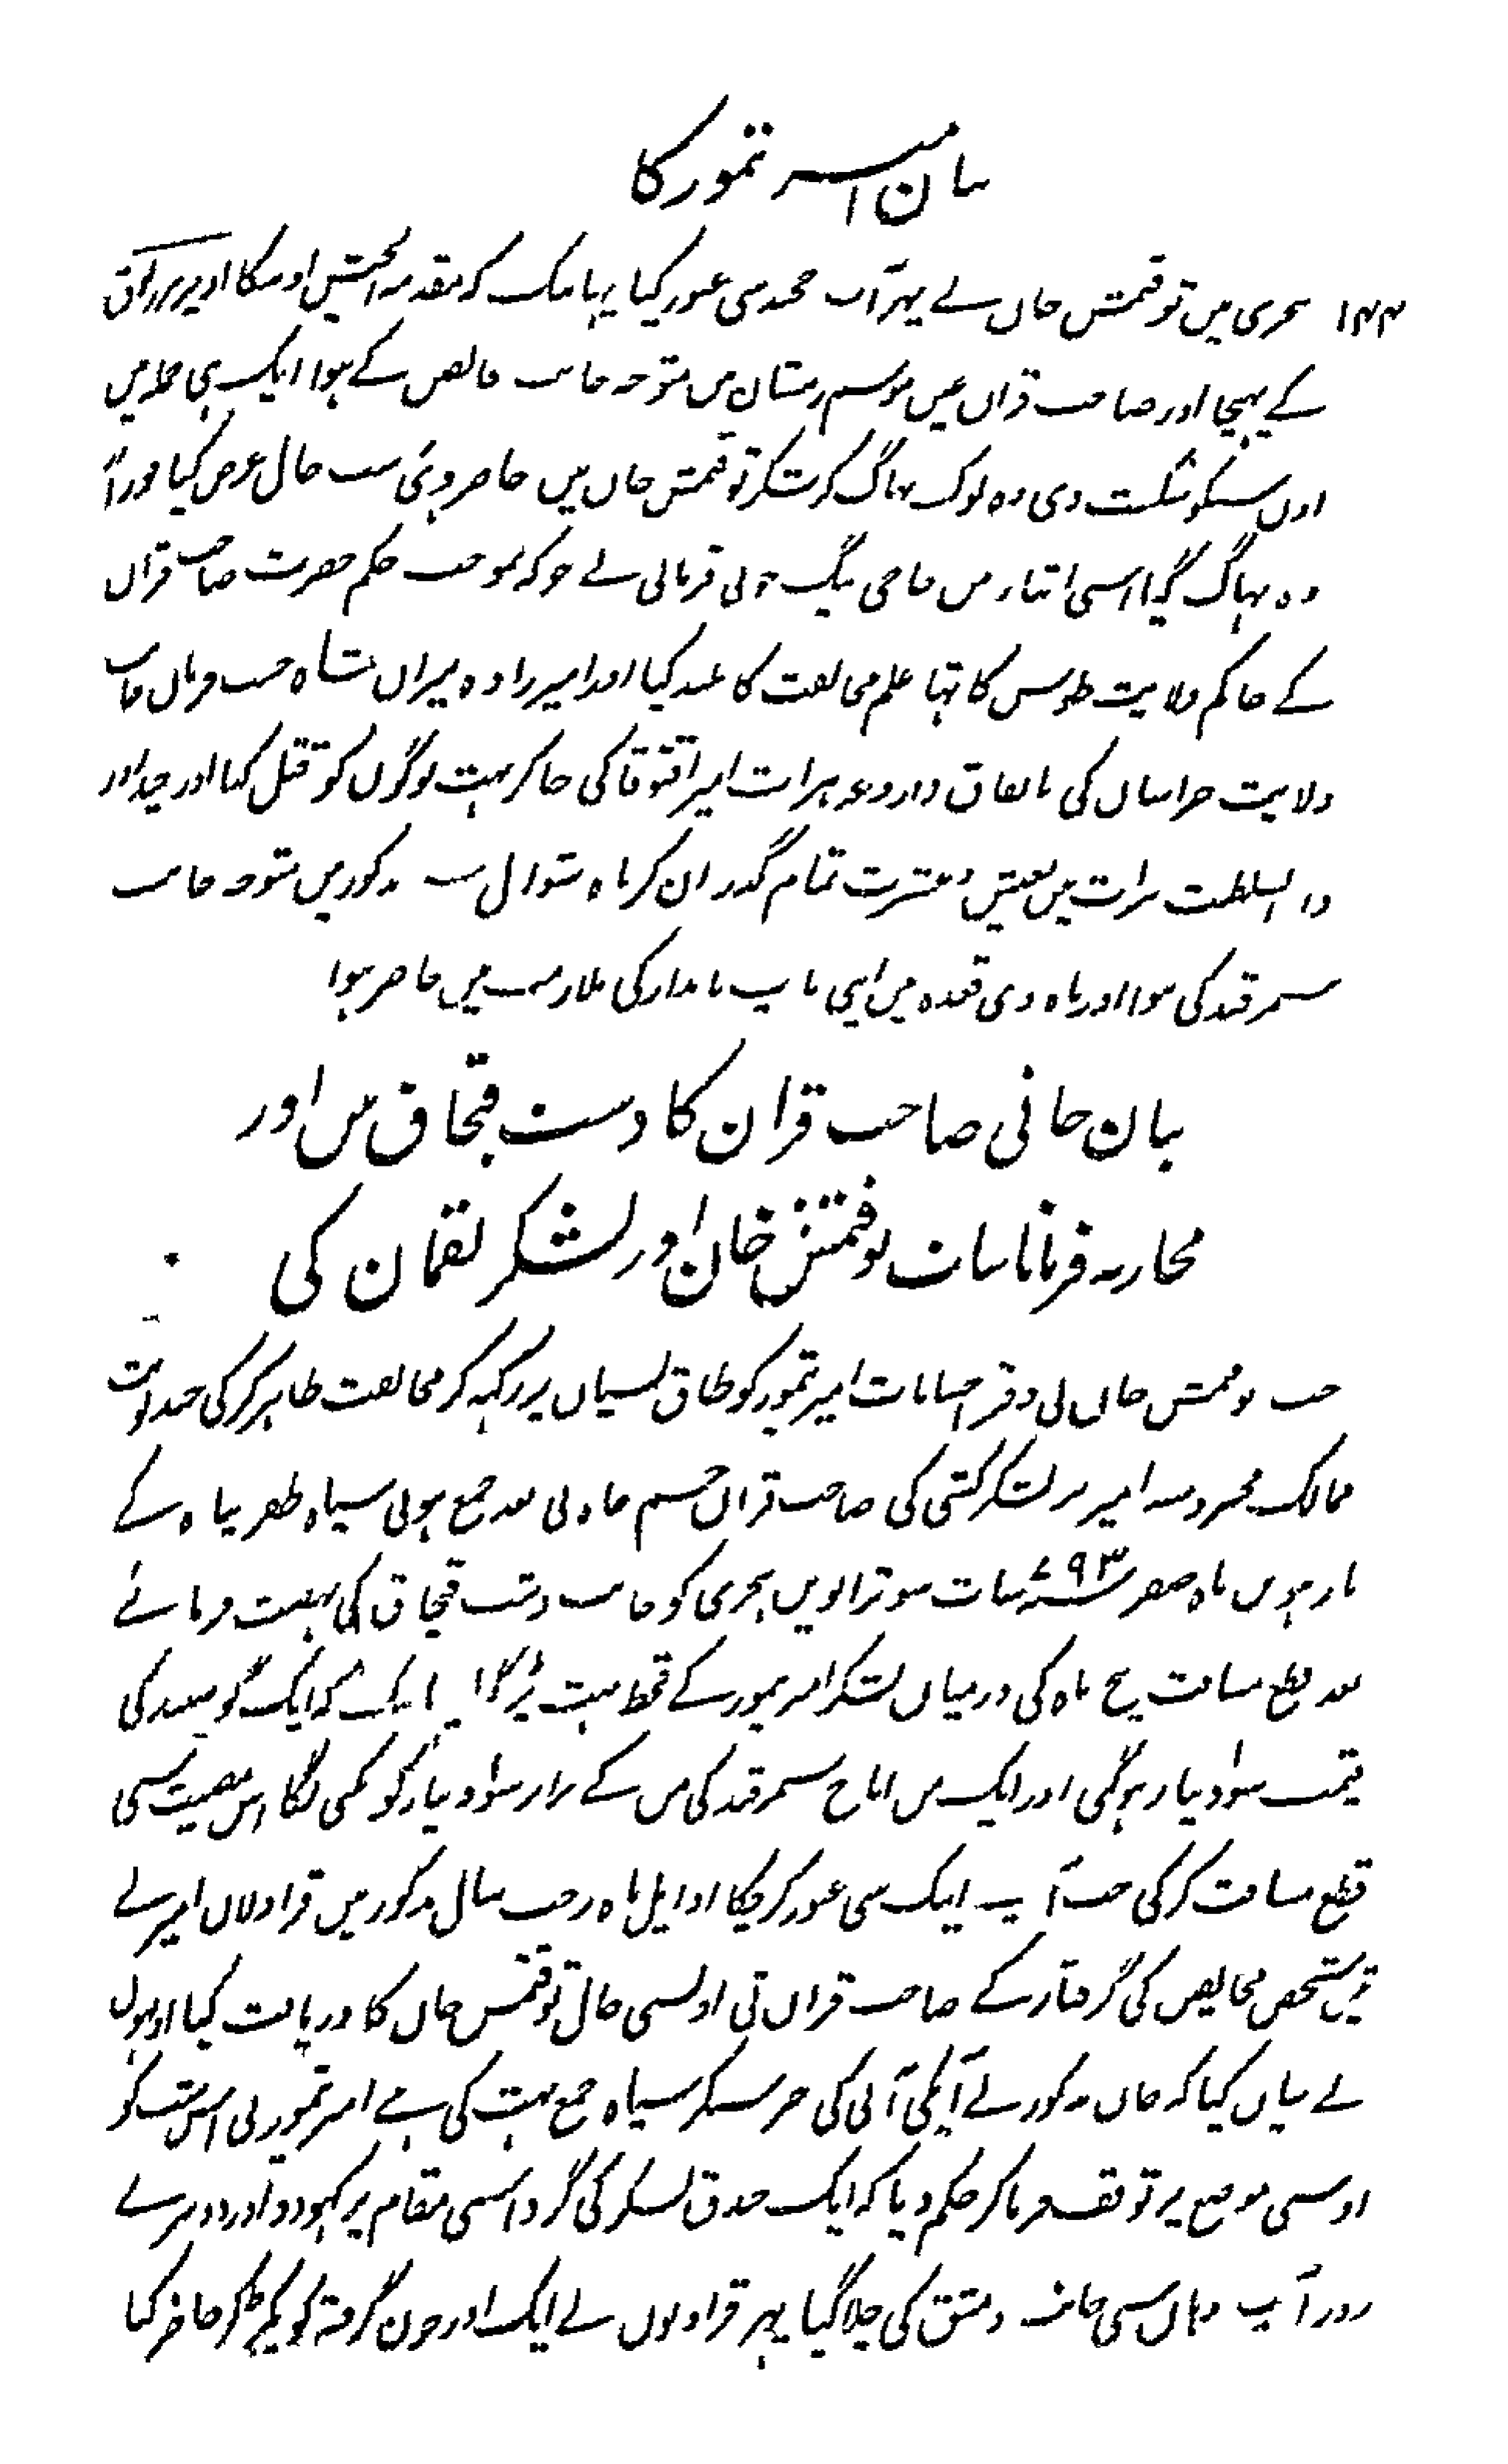 بیان امیر تیمور کا
۱۴۴ ہجری میں توقتمش خاں نے پہر آب خجند سی عبور کیا یہانتک کہ مقدمہ الجیش اوسکا اوپر
کے پہنچا اور صاحب قراں عین موسم زمستان میں متوجہ جانب مخالف کے ہوا ایک ہی حملہ میں
اون سبکو شکست دی وہ لوگ بہاگ کر لشکر توقتمش خاں میں حاضر ہوئی سب حال عرض کیا فوراً
وہ بہاگ گیا اسی اثناء میں حاجی بیگ جونی قربانی نے جو کہ بموجب حکم حضرت صاحب قراں
کے حاکم ولایت طوس کا تہا علم مخالفت کا بلند کیا اور امیرزادہ میراں شاہ حسب فرماں جانب
ولایت خراسان کی باتفاق داروغہ ہرات امیر اقبوقا کی جاکر بہت لوگوں کو قتل کیا اور چند روز
دارالسلطنت ہرات میں بعیش و عشرت تمام گذران کر ماہ شوال سنہ مذکور میں متوجہ جانب
سمرقند کی ہوا اور ماہ ذی قعدہ میں اپنی باپ نامدار کی ملازمت میں حاضر ہوا
بیان جانی صاحب قران کا دشت قبچاق میں اور
محاربہ فرمانا ساتھ توقتمش خان اور لشکر لقمان کی
جب توقتمش خاں نی دفتر احسانات امیر تیمور کو طاق نسیاں پر رکہہ کر مخالفت ظاہر کر کی
ممالک محروسہ امیر پر لشکر کشی کی صاحب قراں حشم جاہ نی بعد جمع ہونی سپاہ ظفر پناہ کے
بارہویں ماہ صفر سنہ ۷۹۳ سات سو ترانویں ہجری کو جانب دشت قبچاق کی نہضت فرمائے
بعد قطع مسافت پنج ماہ کی درمیاں لشکر امیر تیمور کے قحط بہت پڑگیا یہانتک کہ ایک گوسپند کی
قیمت سو دینار ہوگی اور ایک من اناج سمرقند کی من کے برابر سو دینار کو بکنی لگا اس مصیبت سی
قطع مسافت کر کی جب آب اتیک سی عبور کر چکا اوایل ماہ رجب سال مذکور میں قراولاں امیر نے
تین شخص مخالفین کی گرفتار کے صاحب قراں نی اونسی حال توقتمش خاں کا دریافت کیا اونہوں
نے بیاں کیا کہ خاں مذکور نے آپکی آنی کی خبر سنکر سپاہ جمع بہت کی ہے امیر تیمور نی اس شب کو
اوسی موضع پر توقف فرماکر حکم دیا کہ ایک خندق لشکر کی گرد اسی مقام پر کہودو اور دوسرے
روز آپ وہاں سی جانب دمشق کی چلا گیا پہر قراولوں نے ایک اور جون گرفتہ کو پکڑ کر حاضر کیا